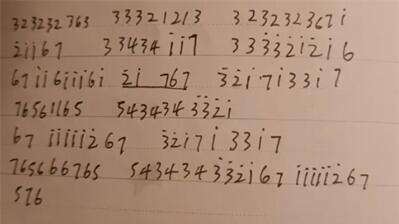 323232 763 33321213 3232323671̇
2̇1̇1̇67 334341̇1̇7 33332̇1̇2̇1̇6
671̇1̇61̇1̇1̇61̇ 2̇1̇ 767 3̇2̇1̇71̇331̇7
76561165 5434343̇3̇2̇1̇
67 1̇1̇1̇1̇1̇2̇67 3̇2̇1̇71̇ 331̇7
765666765 5434343̇3̇2̇1̇67 1̇1̇1̇1̇1̇2̇67
576